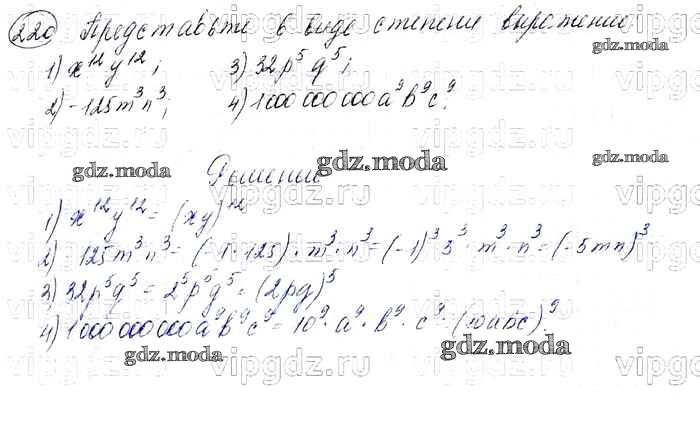 220 Представьте в виде степени выражение
1) x¹²y¹²; 3) 32p⁵q⁵;
2) -125m³n³; 4) 1 000 000 000a⁹b⁹c⁹.
Решение
1) x¹²y¹² = (xy)¹²
2) -125m³n³ = (-1·125)·m³·n³ = (-1)³5³·m³·n³ = (-5mn)³
3) 32p⁵q⁵ = 2⁵p⁵q⁵ = (2pq)⁵
4) 1 000 000 000a⁹b⁹c⁹ = 10⁹·a⁹·b⁹·c⁹ = (10abc)⁹.
gdz.moda
vipgdz.ru